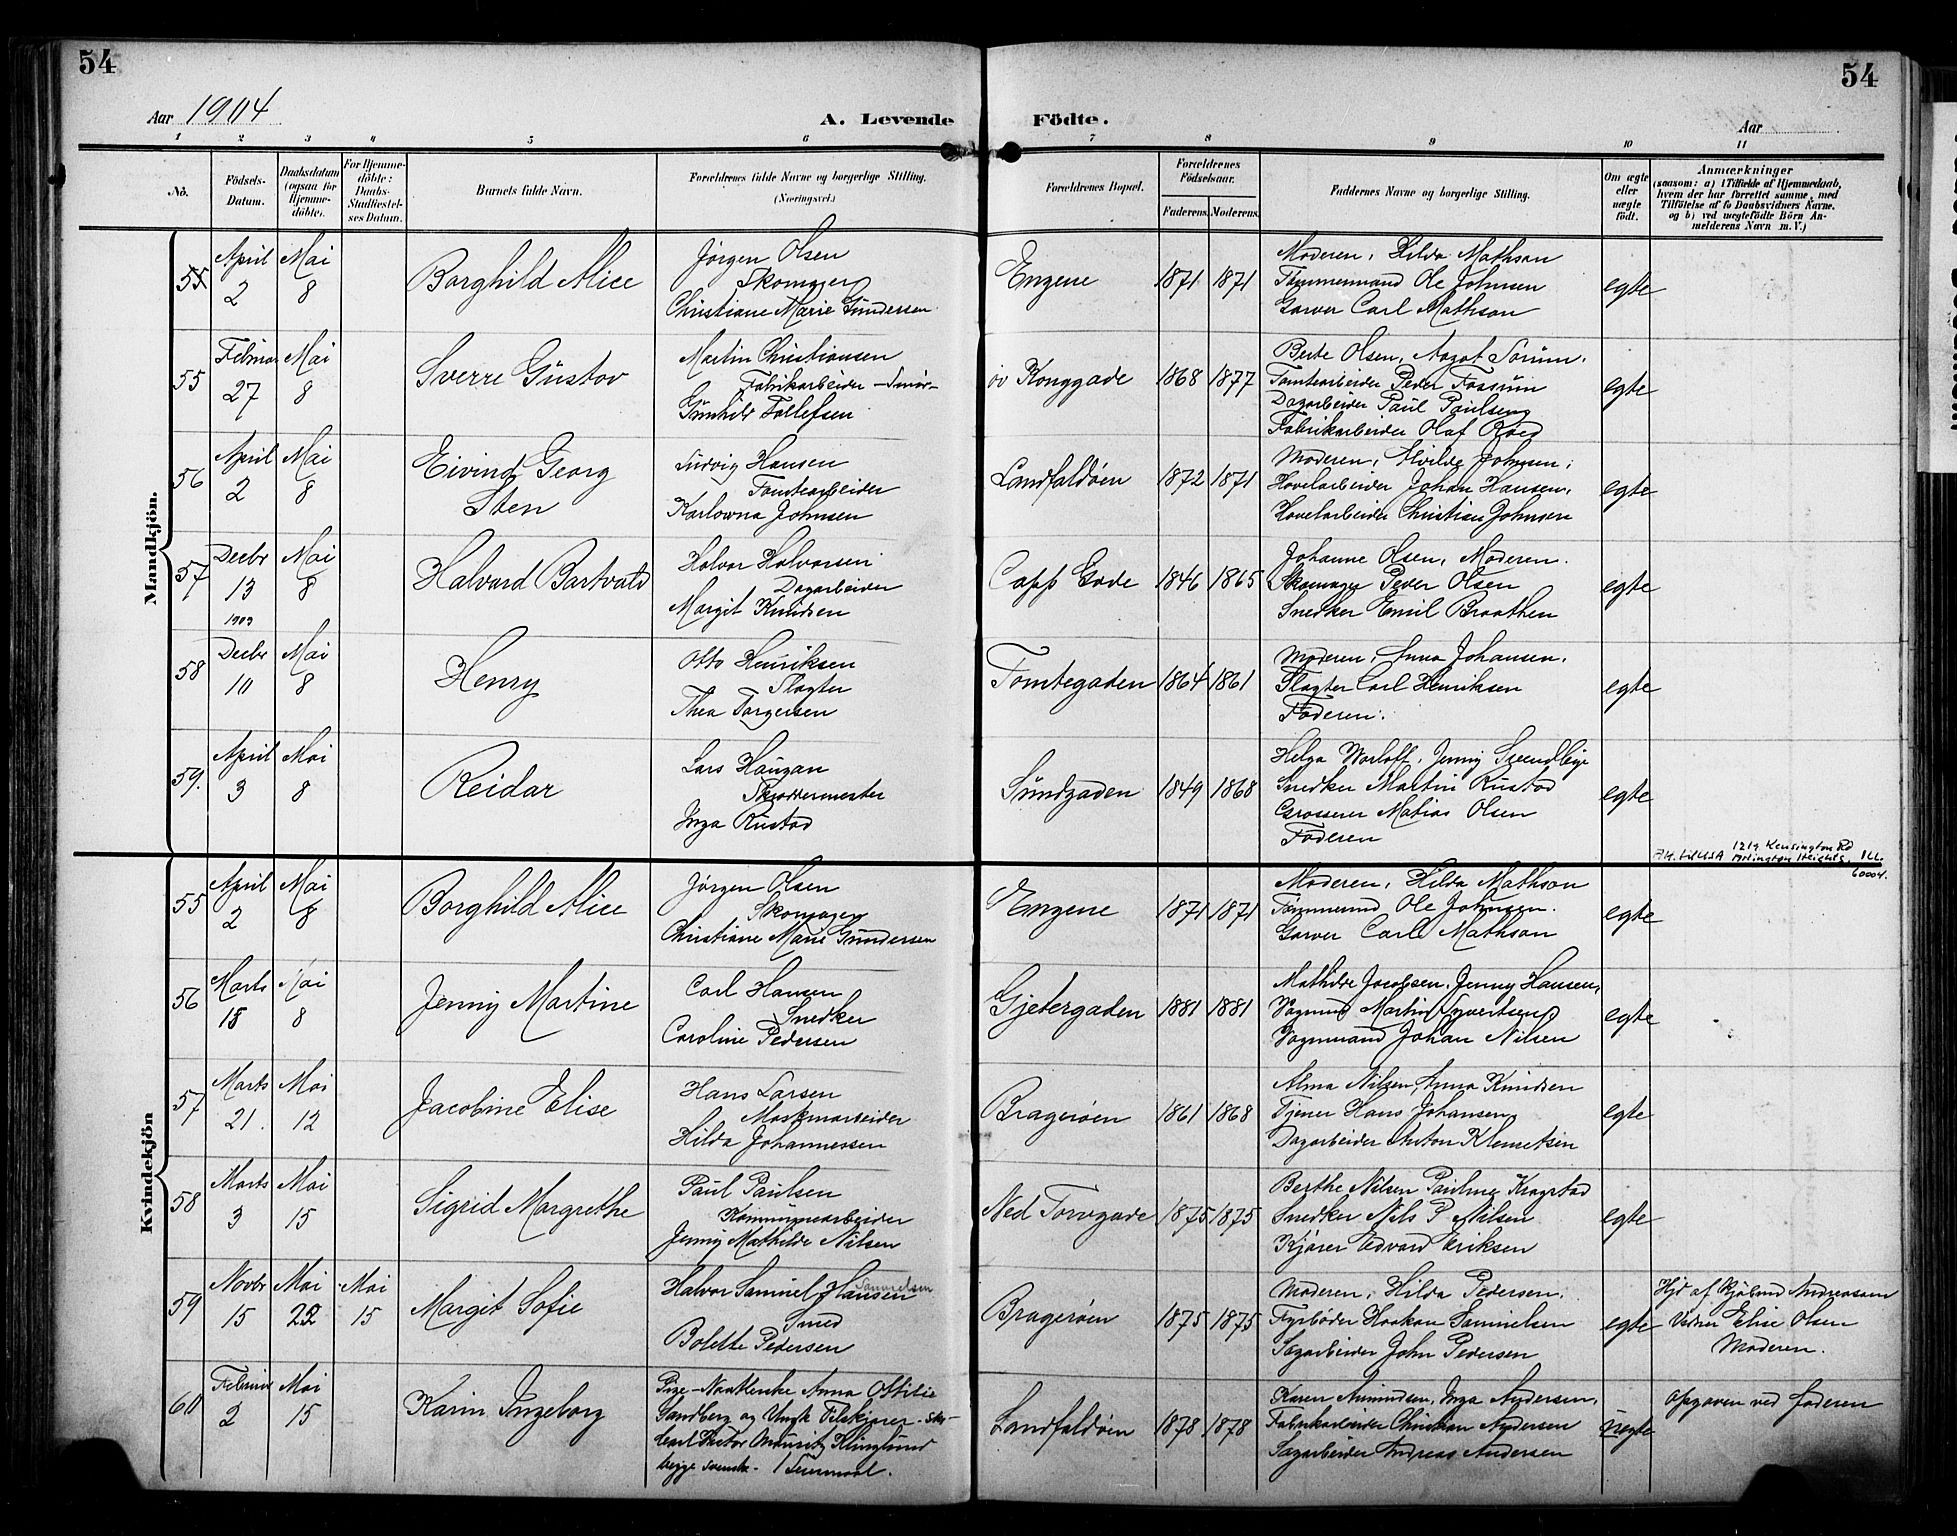 54
54
Aar 1904
A. Levende Födte.
Aar
1 2 3 4 5 6 7 8 9 10 11
No.
Födsels-Datum.
Daabsdatum (ogsaa för Hjemme-döbte).
For Hjemme-döbte: Daabs-Stadfæstel-ses Datum.
Barnets fulde Navn.
Forældrenes fulde Navne og borgerlige Stilling. (Næringsvei.)
Forældrenes Bopæl.
Forældrenes Födselsaar.
Faderens. Moderens.
Faddernes Navne og borgerlige Stilling.
Om ægte eller uægte födt.
Anmærkninger
(saasom: a) i Tilfælde af Hjemmedaab,
hvem der har forrettet samme, med
Tilföielse af to Daabsvidners Navne,
og b) ved uægtefödte Börn An-
melderens Navn m. V.)
Mandkjön.
55 April 2 Mai 8 Borghild Alice
Jörgen Olsen
Skomager
Christiane Marie Gundersen
Engene 1871 1871
Moderen, Hilda Mathson
Tömmermand Ole Johnsen
Garver Carl Mathson
egte
55 Februar 27 Mai 8 Sverre Gustav
Martin Christiansen
Fabrikarbeider - Smör-
Gunhild Tollefsen
öv Konggade 1868 1877
Berte Olsen, Aagot Sörum.
Tomtearbeider Peder Fossum
Dagarbeider Paul Paulsen
Fabrikarbeider Olaf Roed
egte
56 April 2 Mai 8 Eivind Georg
Sten
Ludvig Hansen
Tomtearbeider
Karlowna Johnsen
Landfaldöen 1872 1871
Moderen, Hvilda Johnsen,
Hövelarbeider Johan Hansen,
Hövelarbeider Christian Johnsen
egte
57 Decbr 13 1903 Mai 8 Halvard Bartvald
Halvor Halvorsen
Dagarbeider
Margit Knudsen
Capps Gade 1846 1865
Johanne Olsen, Moderen.
Skomager Peder Olsen
Snedker Emil Braathen
egte
58 Decbr 10 Mai 8 Henry
Otto Henriksen
Slagter
Thea Torgersen
Tomtegaden 1864 1861
Moderen, Anna Johansen.
Slagter Carl Henriksen
Faderen.
egte
59. April 3 Mai 8 Reidar
Lars Haugan
Skræddermester
Inga Rustad
Sundgaden 1849 1868
Helga Warloff, Jenny
Snedker Martin Rustad
Grosserer Matias Olsen
Faderen
egte
Kvindekjön
1219 Kensington Rd
til USA Arlington Heights, ILL.
60004.
55 April 2 Mai 8 Borghild Alice
Jörgen Olsen
Skomager
Christiane Marie Gundersen
Engene 1871 1871
Moderen, Hilda Mathson
Tömmermd Ole Johnsen.
Garver Carl Mathson
egte
56 Marts 15 Mai 8 Jenny Martine
Carl Hansen
Snedker
Caroline Pedersen
Gjetergaden 1881 1881
Mathilde Jacobsen, Jenny Hansen,
Vognmd Martin Syvertsen
Vognmand Johan Nilsen
egte
57 Marts 21. Mai 12 Jacobine Elise
Hans Larsen
Maskinarbeider
Hilda Johannessen
Brageröen 1861 1868
Alma Nilsen, Anna Knudsen
Tjener Hans Johansen
Dagarbeider Anton Klemetsen
egte
58 Marts 3 Mai 15 Sigrid Margrethe
Paul Paulsen
Kommunearbeider
Jenny Mathilde Nilsen
Ned Torvgade 1875 1875
Berthe Nilsen Pauline Kragstad
Snedker Nils P Nilsen
Kjörer Edvard Eriksen
egte
59 Novbr 15 Mai 22 Mai 15 Margit Sofie
Halvor Samuel Hansen Samuelsen
Smed
Bolette Pedersen
Brageröen 1875 1875
Moderen, Hilda Pedersen.
Fyrböder Haakon Samuelsen
Sagarbeider John Pedersen
egte
Hjd af Andreassen
Vidner Elise Olsen
Moderen.
60 Februar 2 Mai 15 Karin Ingeborg
Pige Anna Ottilie
Sandberg og Ungk
Carl Victor Mauritz Klinglund
begge svenske.
Landfaldöen 1878 1878
Karen Amundsen, Inga Andersen,
Fabrikarbeider Christian Andersen
Sagarbeider Andreas Andersen
uegte
opgaven ved faderen